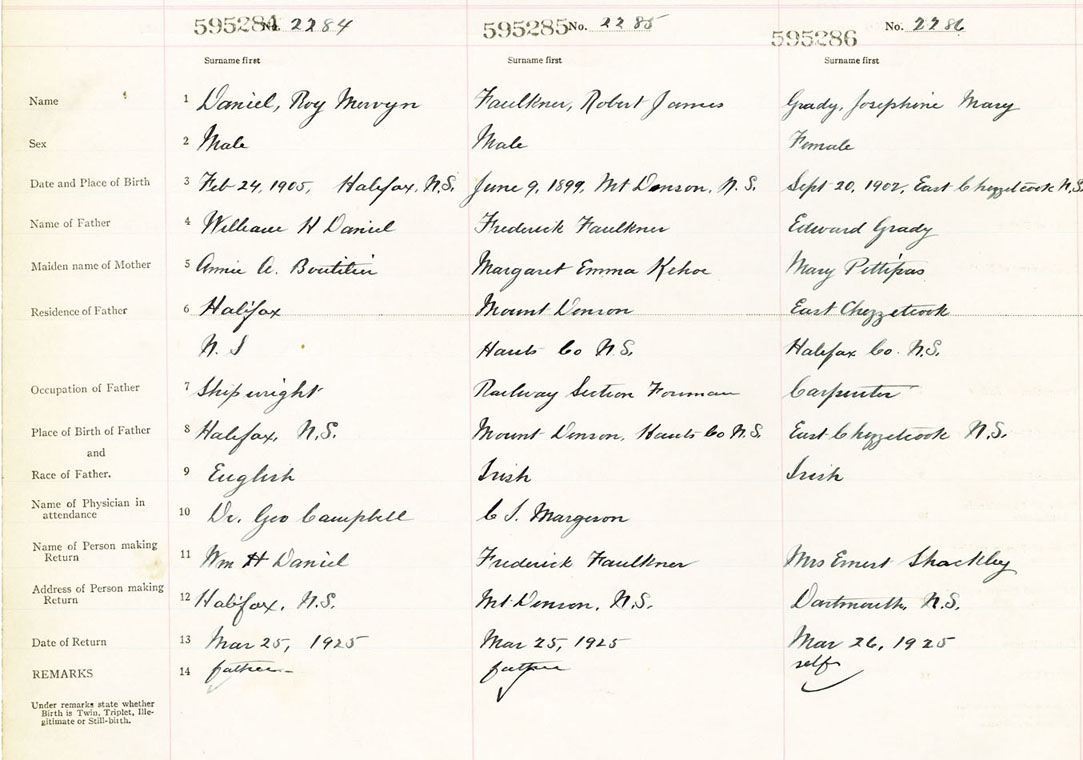 595284 No. 2284 595285 No. 2285 595286 No. 2286
Surname first Surname first Surname first
Name 1 Daniel, Roy Mervyn Faulkner, Robert James Grady, Josephine Mary
Sex 2 Male Male Female
Date and Place of Birth 3 Feb 24, 1905, Halifax, N.S. June 9, 1899, Mt Denson, N.S. Sept 20, 1902, East Chezzetcook N.S.
Name of Father 4 William H Daniel Frederick Faulkner Edward Grady
Maiden name of Mother 5 Annie A. Boutilier Margaret Emma Kehoe Mary Pettipas
Residence of Father 6 Halifax Mount Denson East Chezzetcook
N. S Hants Co N.S. Halifax Co. N.S.
Occupation of Father 7 Shipwright Railway Section Forman Carpenter
Place of Birth of Father 8 Halifax, N.S. Mount Denson, Hants Co N.S. East Chezzetcook N.S.
and
Race of Father. 9 English Irish Irish
Name of Physician in
attendance 10 Dr. Geo Campbell C S. Margeson
Name of Person making
Return 11 Wm H Daniel Frederick Faulkner Mrs Ernest Shackley
Address of Person making
Return 12 Halifax, N.S. Mt Denson, N.S. Dartmouth, N.S.
Date of Return 13 Mar 25, 1925 Mar 25, 1925 Mar 26, 1925
REMARKS 14 father father self
Under remarks state whether
Birth is Twin, Triplet, Ille-
gitimate or Still-birth.